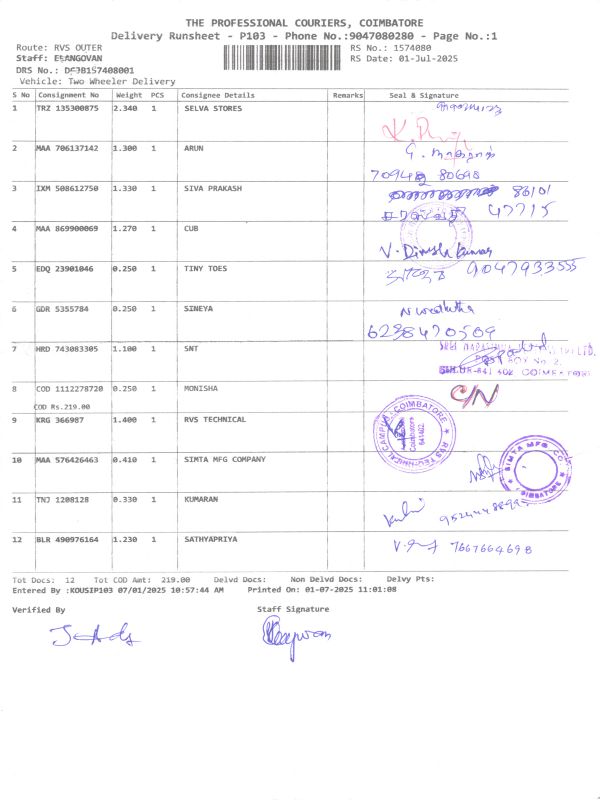 THE PROFESSIONAL COURIERS, COIMBATORE
Delivery Runsheet - P103 - Phone No.:9047080280 - Page No.:1
Route: RVS OUTER
RS No.: 1574080
Staff: ELANGOVAN
RS Date: 01-Jul-2025
DRS No.:
Vehicle: Two Wheeler Delivery
S No Consignment No Weight PCS Consignee Details Remarks Seal & Signature
1 TRZ 135300875 2.340 1 SELVA STORES
2 MAA 706137142 1.300 1 ARUN
3 IXM 508612750 1.330 1 SIVA PRAKASH 86101
47715
4 MAA 869900069 1.270 1 CUB V. Dinesh kumar
5 EDQ 23901046 0.250 1 TINY TOES 9047933555
6 GDR 5355784 0.250 1 SINEYA
6238470509
7 HRD 743083305 1.100 1 SNT
POST BOX No. 2,
8 COD 1112278720 0.250 1 MONISHA C/N
COD Rs.219.00
9 KRG 366987 1.400 1 RVS TECHNICAL RVS TECHNICAL CAMPUS COIMBATORE
Coimbatore
641402
10 MAA 576426463 0.410 1 SIMTA MFG COMPANY SIMTA MFG. CO. COIMBATORE
11 TNJ 1208128 0.330 1 KUMARAN
12 BLR 490976164 1.230 1 SATHYAPRIYA 7667664698
Tot Docs: 12 Tot COD Amt: 219.00 Delvd Docs: Non Delvd Docs: Delvy Pts:
Entered By :KOUSIP103 07/01/2025 10:57:44 AM Printed On: 01-07-2025 11:01:08
Verified By Staff Signature